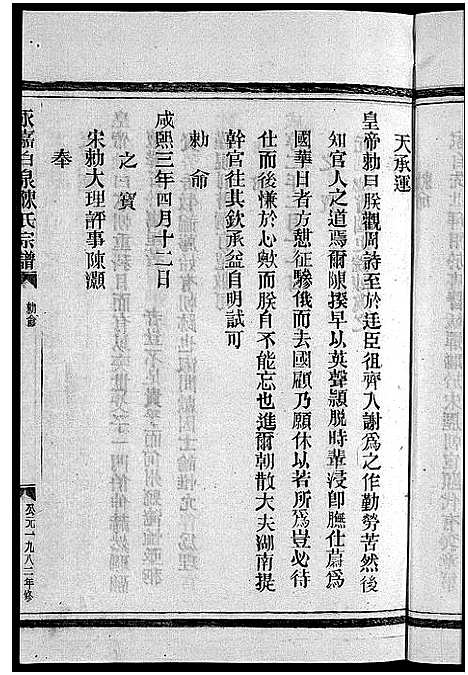 天承運
皇帝勅曰朕觀周詩至於廷臣徂齊入謝為之作勤勞苦然後
知官人之道焉爾陳揆早以英聲頴脫時輩浸卽膴仕蔚為
國華日者方愬征驂俄而去國顧乃願休以若所為豈必待
仕而後慊於心歟而朕自不能忘也進爾朝散大夫湖南提
幹官往其欽承益自明試可
勅命
咸熙三年四月十二日
之寶
宋勅大理評事陳灝
奉
永嘉白泉陳氏宗譜
勅命
公元一九八三年修